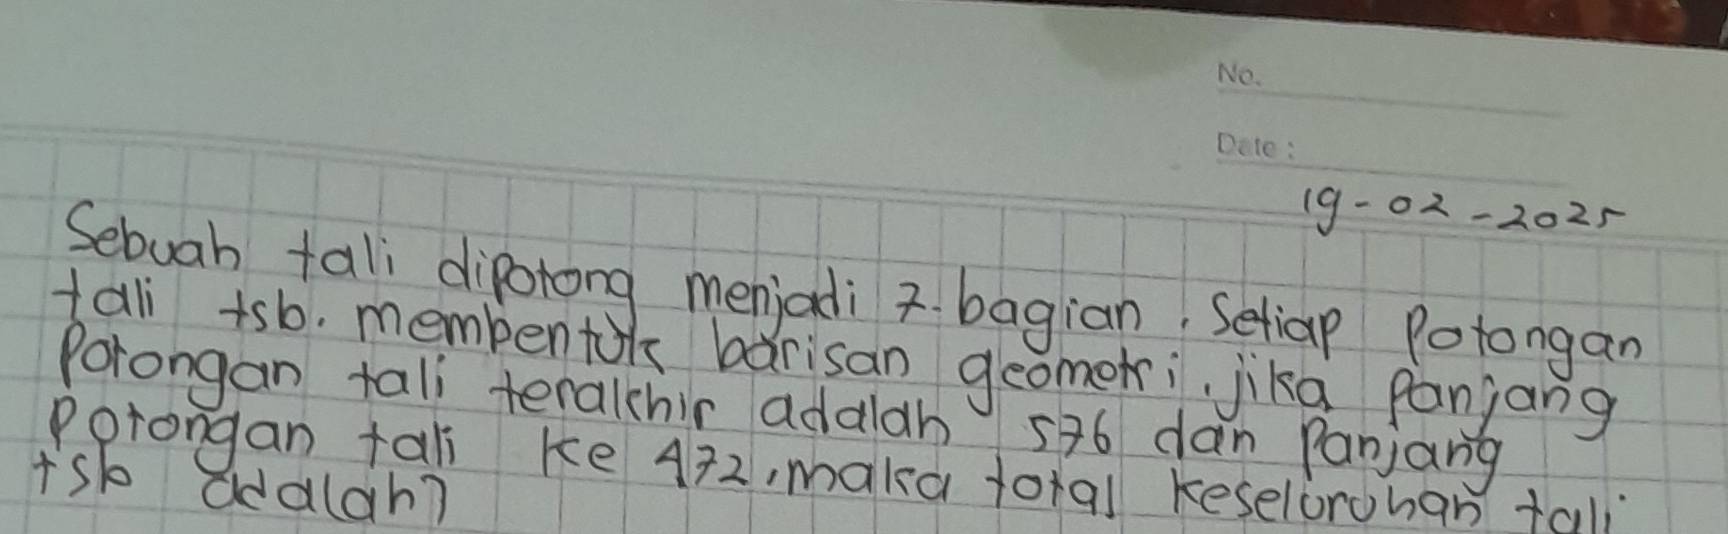 No.
Date:
19-02-2025
Sebuah tali dipotong menjadi 7 bagian. Setiap Potongan
tali tsb. membentuk barisan geometri. jika Panjang
Potongan tali terakhir adalah 576 dan Panjang
Potongan tali ke 472, maka total keseluruhan tali
tsb adalah?